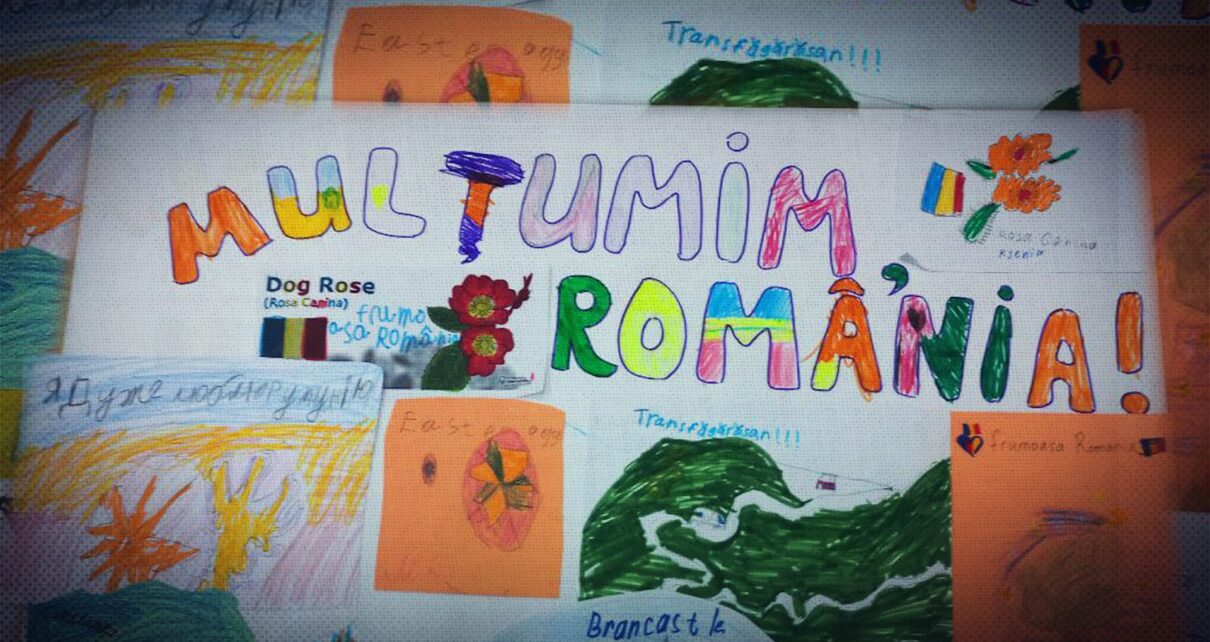 East
Transfăgărăsan!!!
MULȚUMIM
Rosa Canina
Ksenia
Dog Rose
(Rosa Canina)
frumo
asa România
ROMÂNIA!
Я Дуже люблю румунІЮ
East egg
Transfăgărăsan!!!
frumoasa Romania
Brancastle